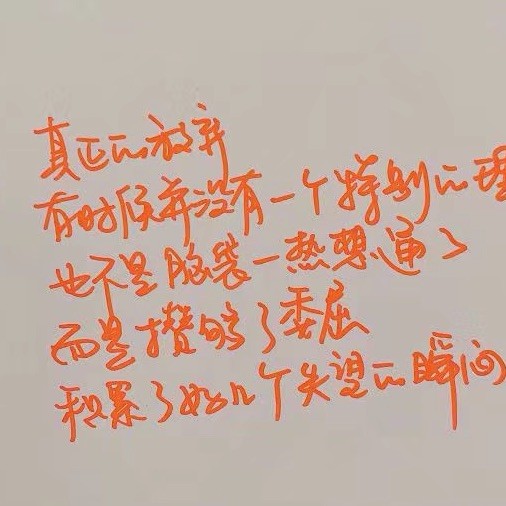 真正的放弃
有时候并没有一个特别的理
也不是脑袋一热想通了
而是攒够了委屈
积累了好几个失望的瞬间